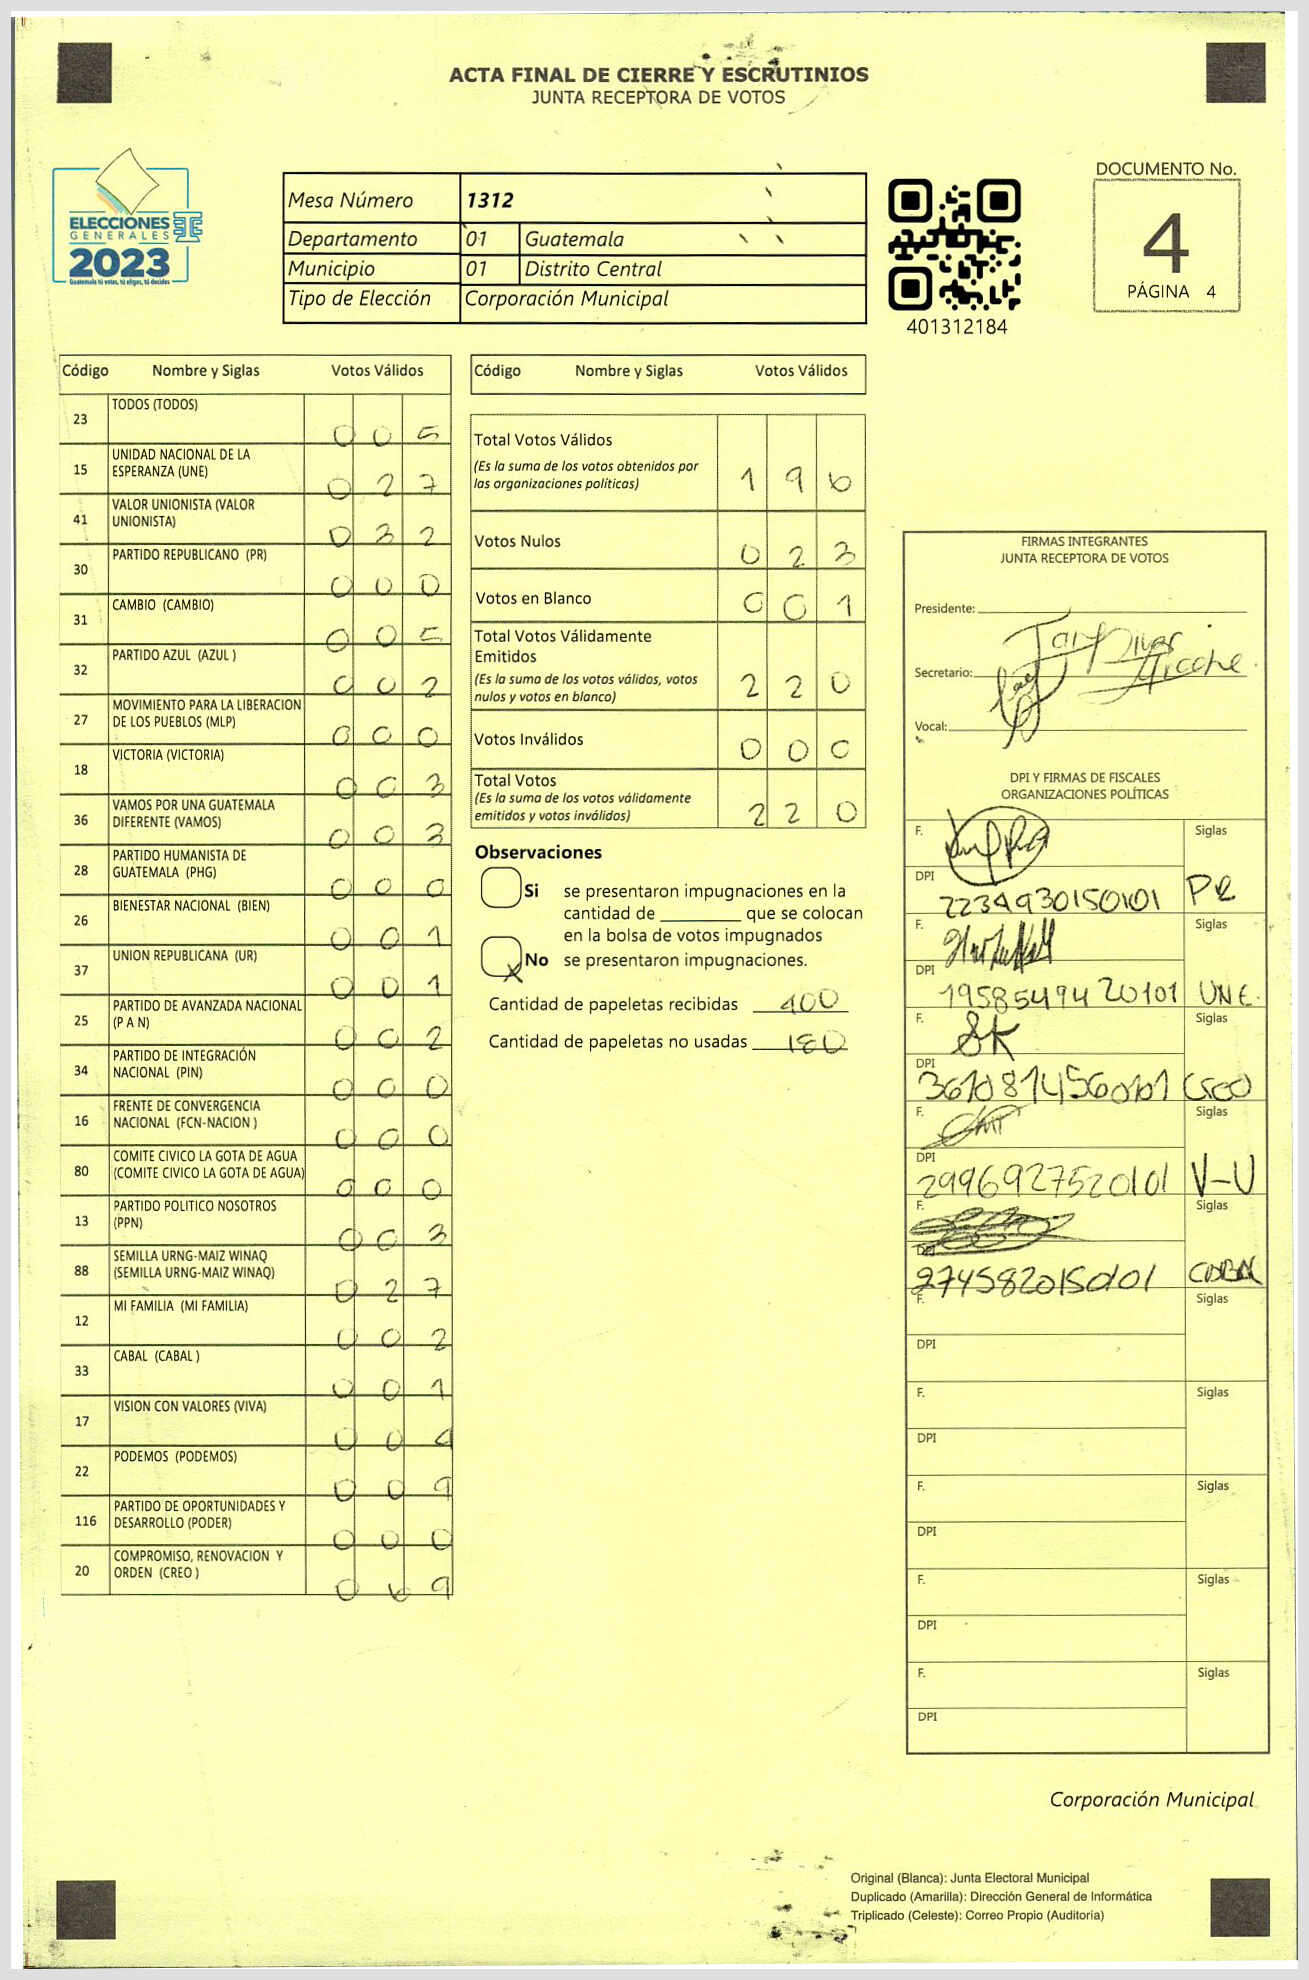 ACTA FINAL DE CIERRE Y ESCRUTINIOS
JUNTA RECEPTORA DE VOTOS
ELECCIONES
GENERALES
2023
Guatemala tú votas, tú eliges, tú decides
Mesa Número 1312
Departamento 01 Guatemala
Municipio 01 Distrito Central
Tipo de Elección Corporación Municipal
401312184
DOCUMENTO No.
4
PÁGINA 4
Código Nombre y Siglas Votos Válidos
23 TODOS (TODOS) 0 0 5
15 UNIDAD NACIONAL DE LA
ESPERANZA (UNE) 0 2 7
41 VALOR UNIONISTA (VALOR
UNIONISTA) 0 3 2
30 PARTIDO REPUBLICANO (PR) 0 0 0
31 CAMBIO (CAMBIO) 0 0 5
32 PARTIDO AZUL (AZUL ) 0 0 2
27 MOVIMIENTO PARA LA LIBERACION
DE LOS PUEBLOS (MLP) 0 0 0
18 VICTORIA (VICTORIA) 0 0 3
36 VAMOS POR UNA GUATEMALA
DIFERENTE (VAMOS) 0 0 3
28 PARTIDO HUMANISTA DE
GUATEMALA (PHG) 0 0 0
26 BIENESTAR NACIONAL (BIEN) 0 0 1
37 UNION REPUBLICANA (UR) 0 0 1
25 PARTIDO DE AVANZADA NACIONAL
(P A N) 0 0 2
34 PARTIDO DE INTEGRACIÓN
NACIONAL (PIN) 0 0 0
16 FRENTE DE CONVERGENCIA
NACIONAL (FCN-NACION ) 0 0 0
80 COMITE CIVICO LA GOTA DE AGUA
(COMITE CIVICO LA GOTA DE AGUA) 0 0 0
13 PARTIDO POLITICO NOSOTROS
(PPN) 0 0 3
88 SEMILLA URNG-MAIZ WINAQ
(SEMILLA URNG-MAIZ WINAQ) 0 2 7
12 MI FAMILIA (MI FAMILIA) 0 0 2
33 CABAL (CABAL ) 0 0 1
17 VISION CON VALORES (VIVA) 0 0 4
22 PODEMOS (PODEMOS) 0 0 9
116 PARTIDO DE OPORTUNIDADES Y
DESARROLLO (PODER) 0 0 0
20 COMPROMISO, RENOVACION Y
ORDEN (CREO ) 0 6 9
Código Nombre y Siglas Votos Válidos
Total Votos Válidos
(Es la suma de los votos obtenidos por
las organizaciones políticas) 1 9 6
Votos Nulos 0 2 3
Votos en Blanco 0 0 1
Total Votos Válidamente
Emitidos
(Es la suma de los votos válidos, votos
nulos y votos en blanco) 2 2 0
Votos Inválidos 0 0 0
Total Votos
(Es la suma de los votos válidamente
emitidos y votos inválidos) 2 2 0
Observaciones
Si se presentaron impugnaciones en la
cantidad de ________ que se colocan
en la bolsa de votos impugnados
No se presentaron impugnaciones.
Cantidad de papeletas recibidas 400
Cantidad de papeletas no usadas 180
FIRMAS INTEGRANTES
JUNTA RECEPTORA DE VOTOS
Presidente:
Secretario:
Vocal:
DPI Y FIRMAS DE FISCALES
ORGANIZACIONES POLÍTICAS
F. Siglas
DPI 2234930150101 PR
F. Siglas
DPI 1958549420101 UNE.
F. Siglas
DPI 3610814560101
F. Siglas
DPI 2996927520101 V-U
F. Siglas
DPI 2745820150101
F. Siglas
DPI
F. Siglas
DPI
F. Siglas
DPI
F. Siglas
DPI
F. Siglas
DPI
Corporación Municipal
Original (Blanca): Junta Electoral Municipal
Duplicado (Amarilla): Dirección General de Informática
Triplicado (Celeste): Correo Propio (Auditoría)